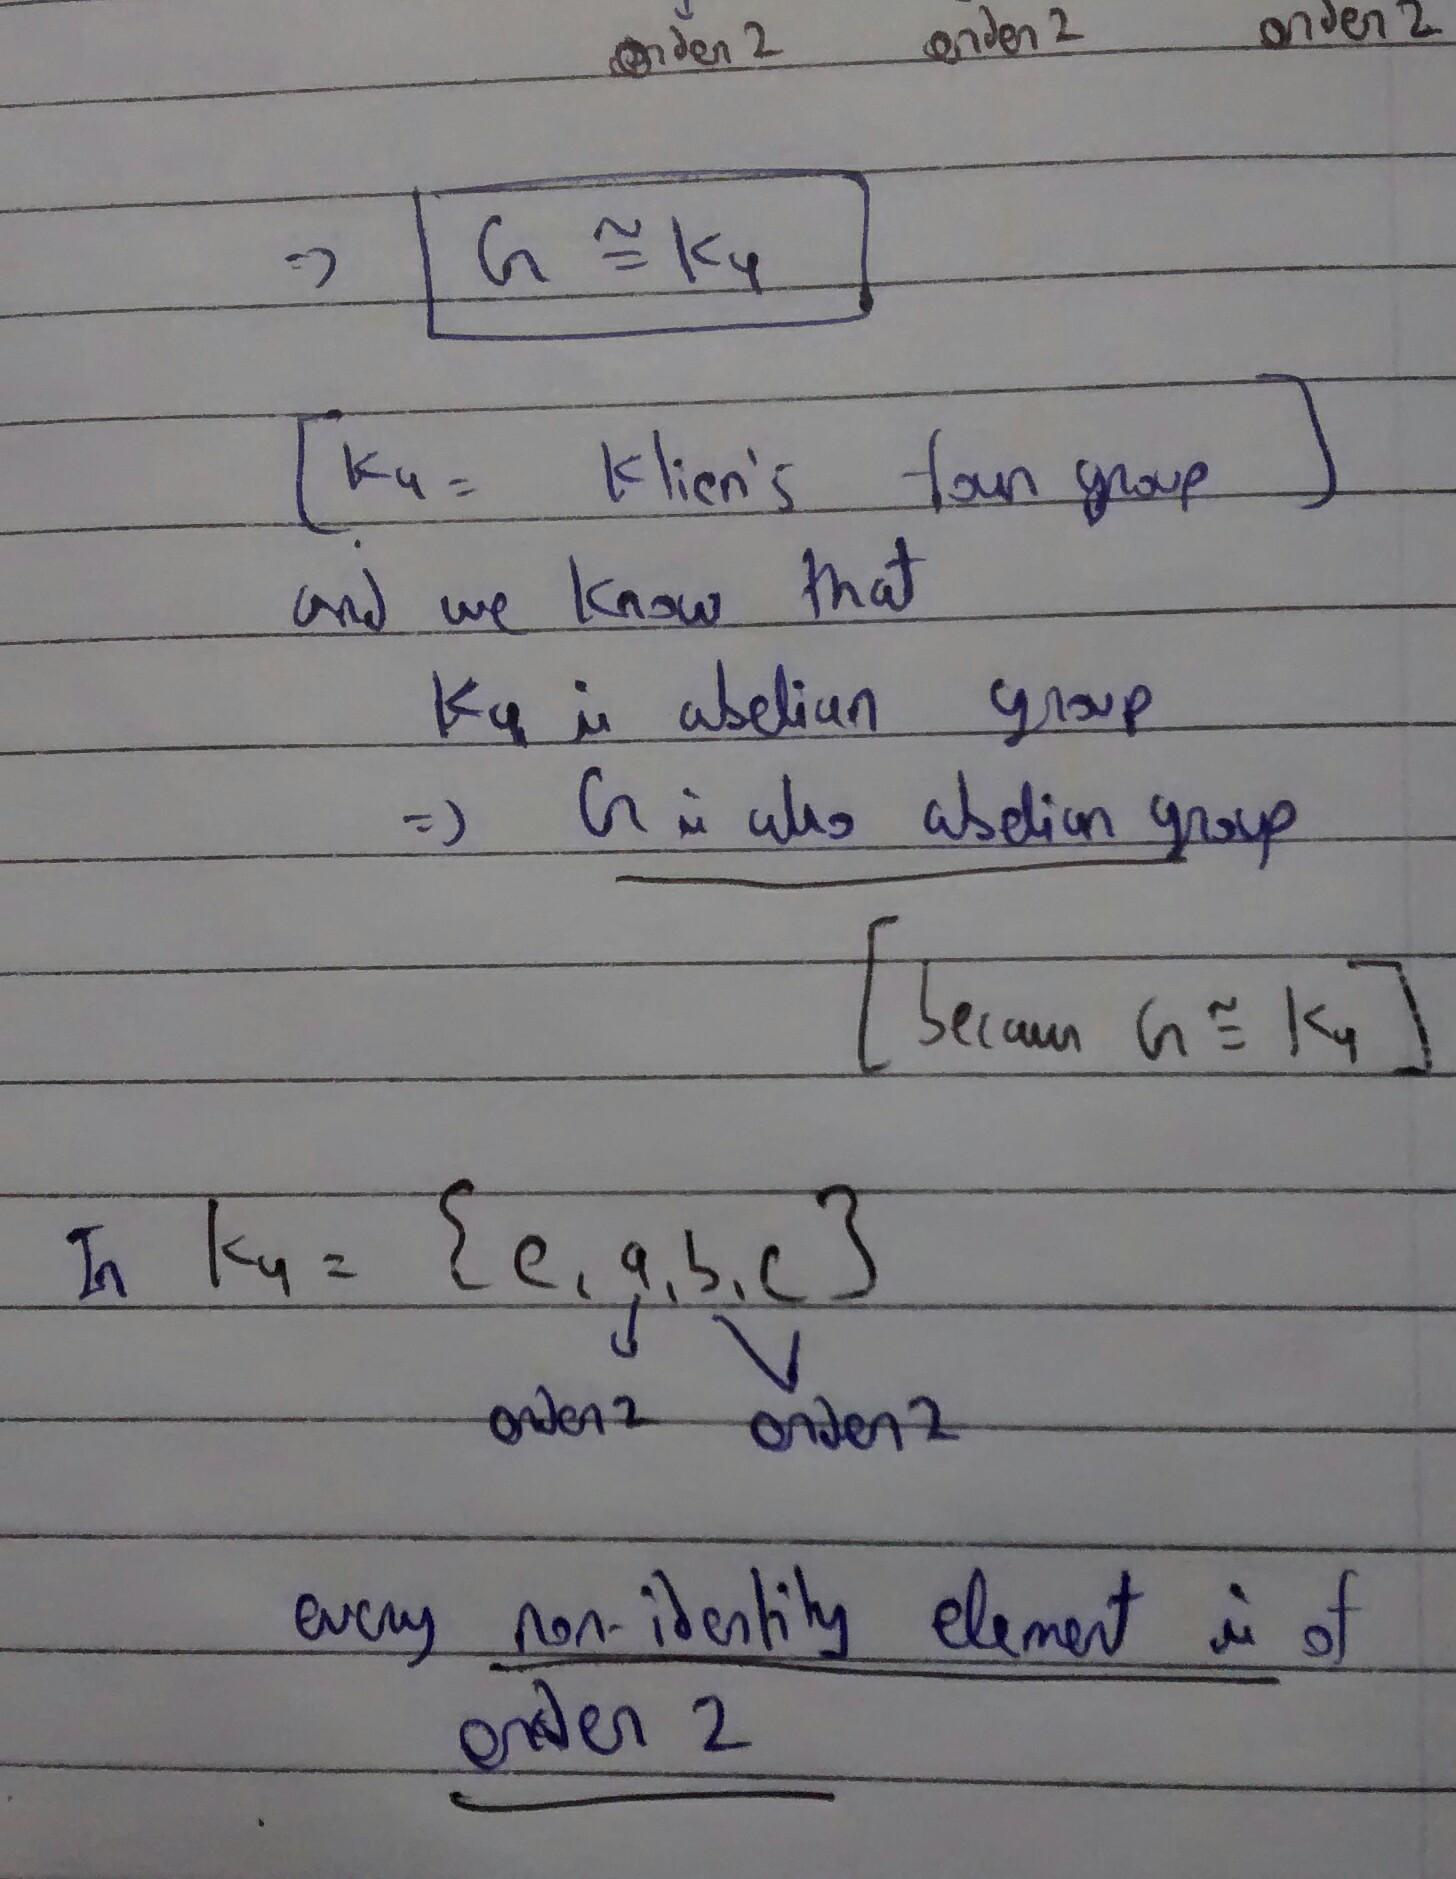 order 2 order 2 order 2
=> G ≅ K4
[K4 = Klien's four group]
and we know that
K4 is abelian group
=> G is also abelian group
[because G ≅ K4]
In K4 = {e, a, b, c}
order 2 order 2
every non-identity element is of
order 2